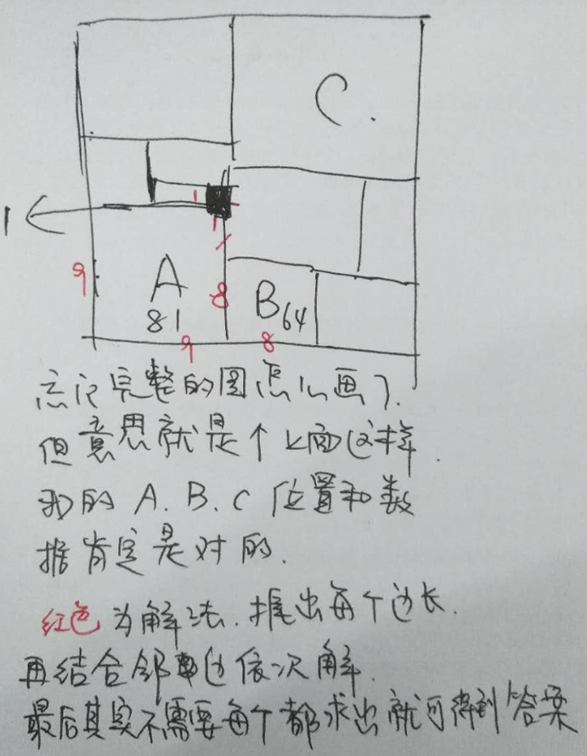 C.
1
1
1
9
A
81
9
8
B64
8
忘记完整的图怎么画了.
但意思就是个上面这样.
我的A.B.C位置和数
据肯定是对的.
红色为解法.推出每个边长.
再结合邻边依次解.
最后其实不需要每个都求出就可得到答案